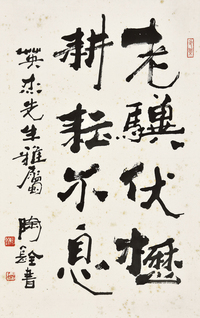 老骥伏櫪
耕耘不息
英杰先生雅屬
陶銓書